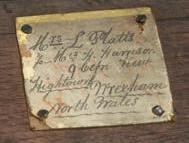 Mrs L Platts
℅ Mrs H. Harrison
9 Cefn View
Hightown Wrexham
North Wales